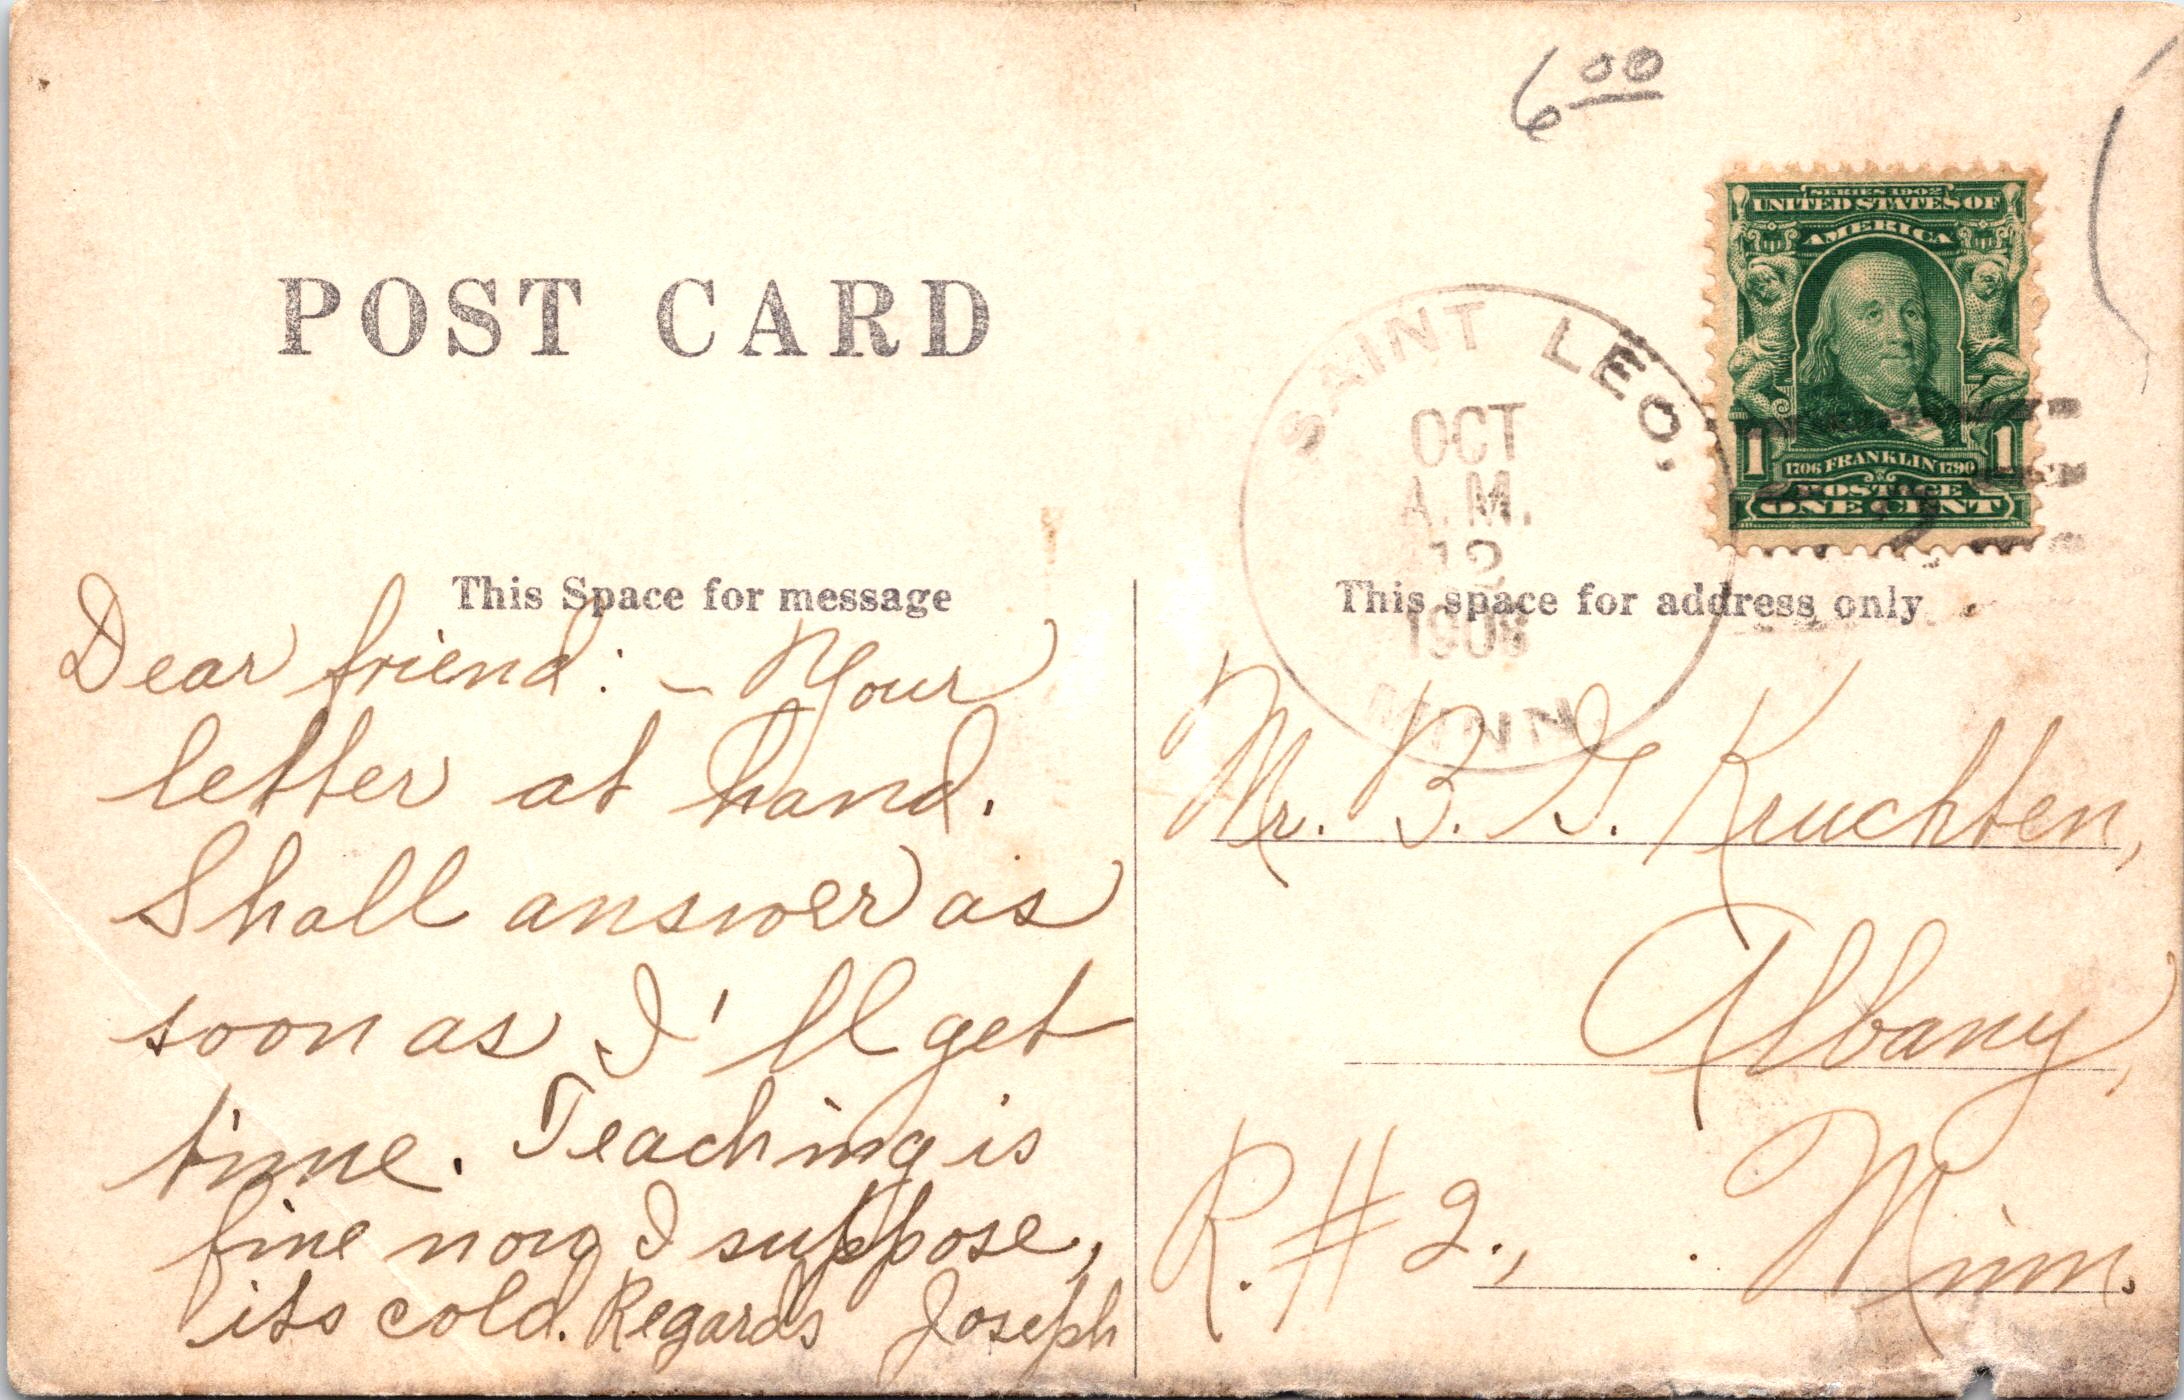 6 00
POST CARD
SERIES 1902
UNITED STATES OF
AMERICA
1 1
1706 FRANKLIN 1790
POSTAGE
ONE CENT
SAINT LEO,
OCT
A.M.
12
MINN
This Space for message
Dear friend: – Your
letter at hand.
Shall answer as
soon as I'll get
time. Teaching is
fine now I suppose,
its cold. Regards Joseph
This space for address only
Mr. B. G. Kruchten,
Albany,
R. # 2., Minn.